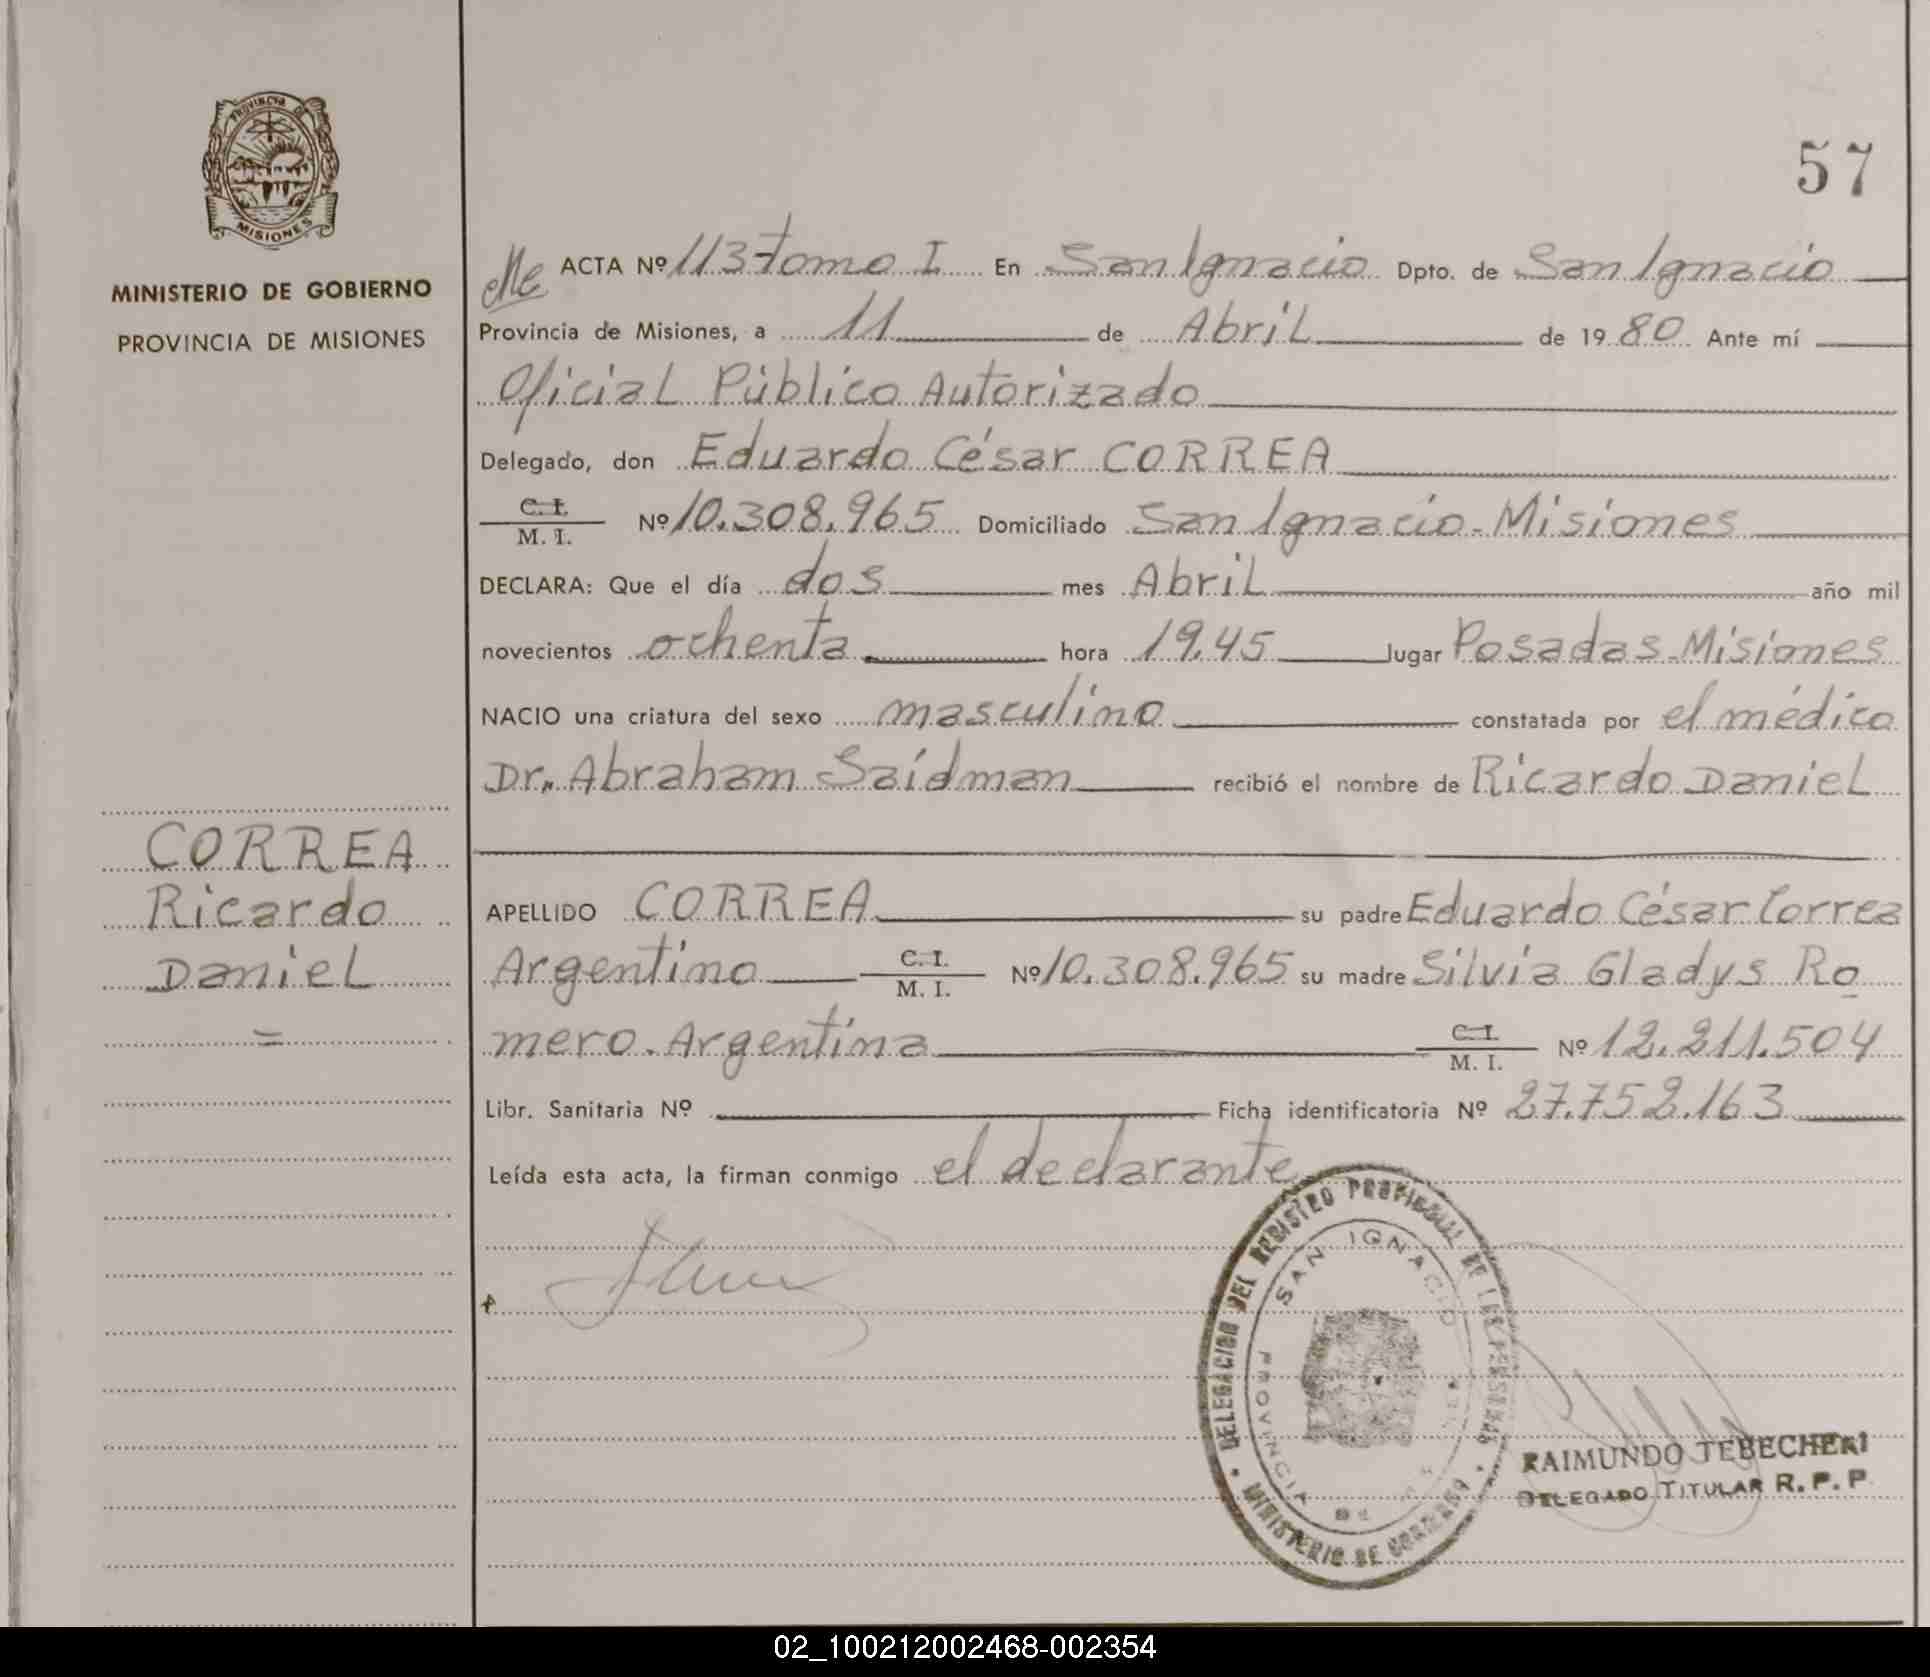 57
PROVINCIA DE
MISIONES
MINISTERIO DE GOBIERNO
PROVINCIA DE MISIONES
ACTA Nº 113-tomo I En San Ignacio Dpto. de San Ignacio
Provincia de Misiones, a 11 de Abril de 1980 Ante mí
Oficial Público Autorizado
Delegado, don Eduardo César CORREA
C. I.
M. I. Nº 10.308.965 Domiciliado San Ignacio-Misiones
DECLARA: Que el día dos mes Abril año mil
novecientos ochenta hora 19.45 lugar Posadas-Misiones
NACIO una criatura del sexo masculino constatada por el médico
Dr. Abraham Saidman recibió el nombre de Ricardo Daniel
CORREA
Ricardo
Daniel
=
APELLIDO CORREA su padre Eduardo César Correa
Argentino C. I.
M. I. Nº 10.308.965 su madre Silvia Gladys Ro
mero. Argentina C. I.
M. I. Nº 12.211.504
Libr. Sanitaria Nº Ficha identificatoria Nº 27.752.163
Leída esta acta, la firman conmigo el declarante
DELEGACION DEL REGISTRO PROVINCIAL DE LAS PERSONAS
SAN IGNACIO
PROVINCIA DE
MINISTERIO DE GOBIERNO
RAIMUNDO TEBECHERI
DELEGADO TITULAR R. P. P.
02_100212002468-002354